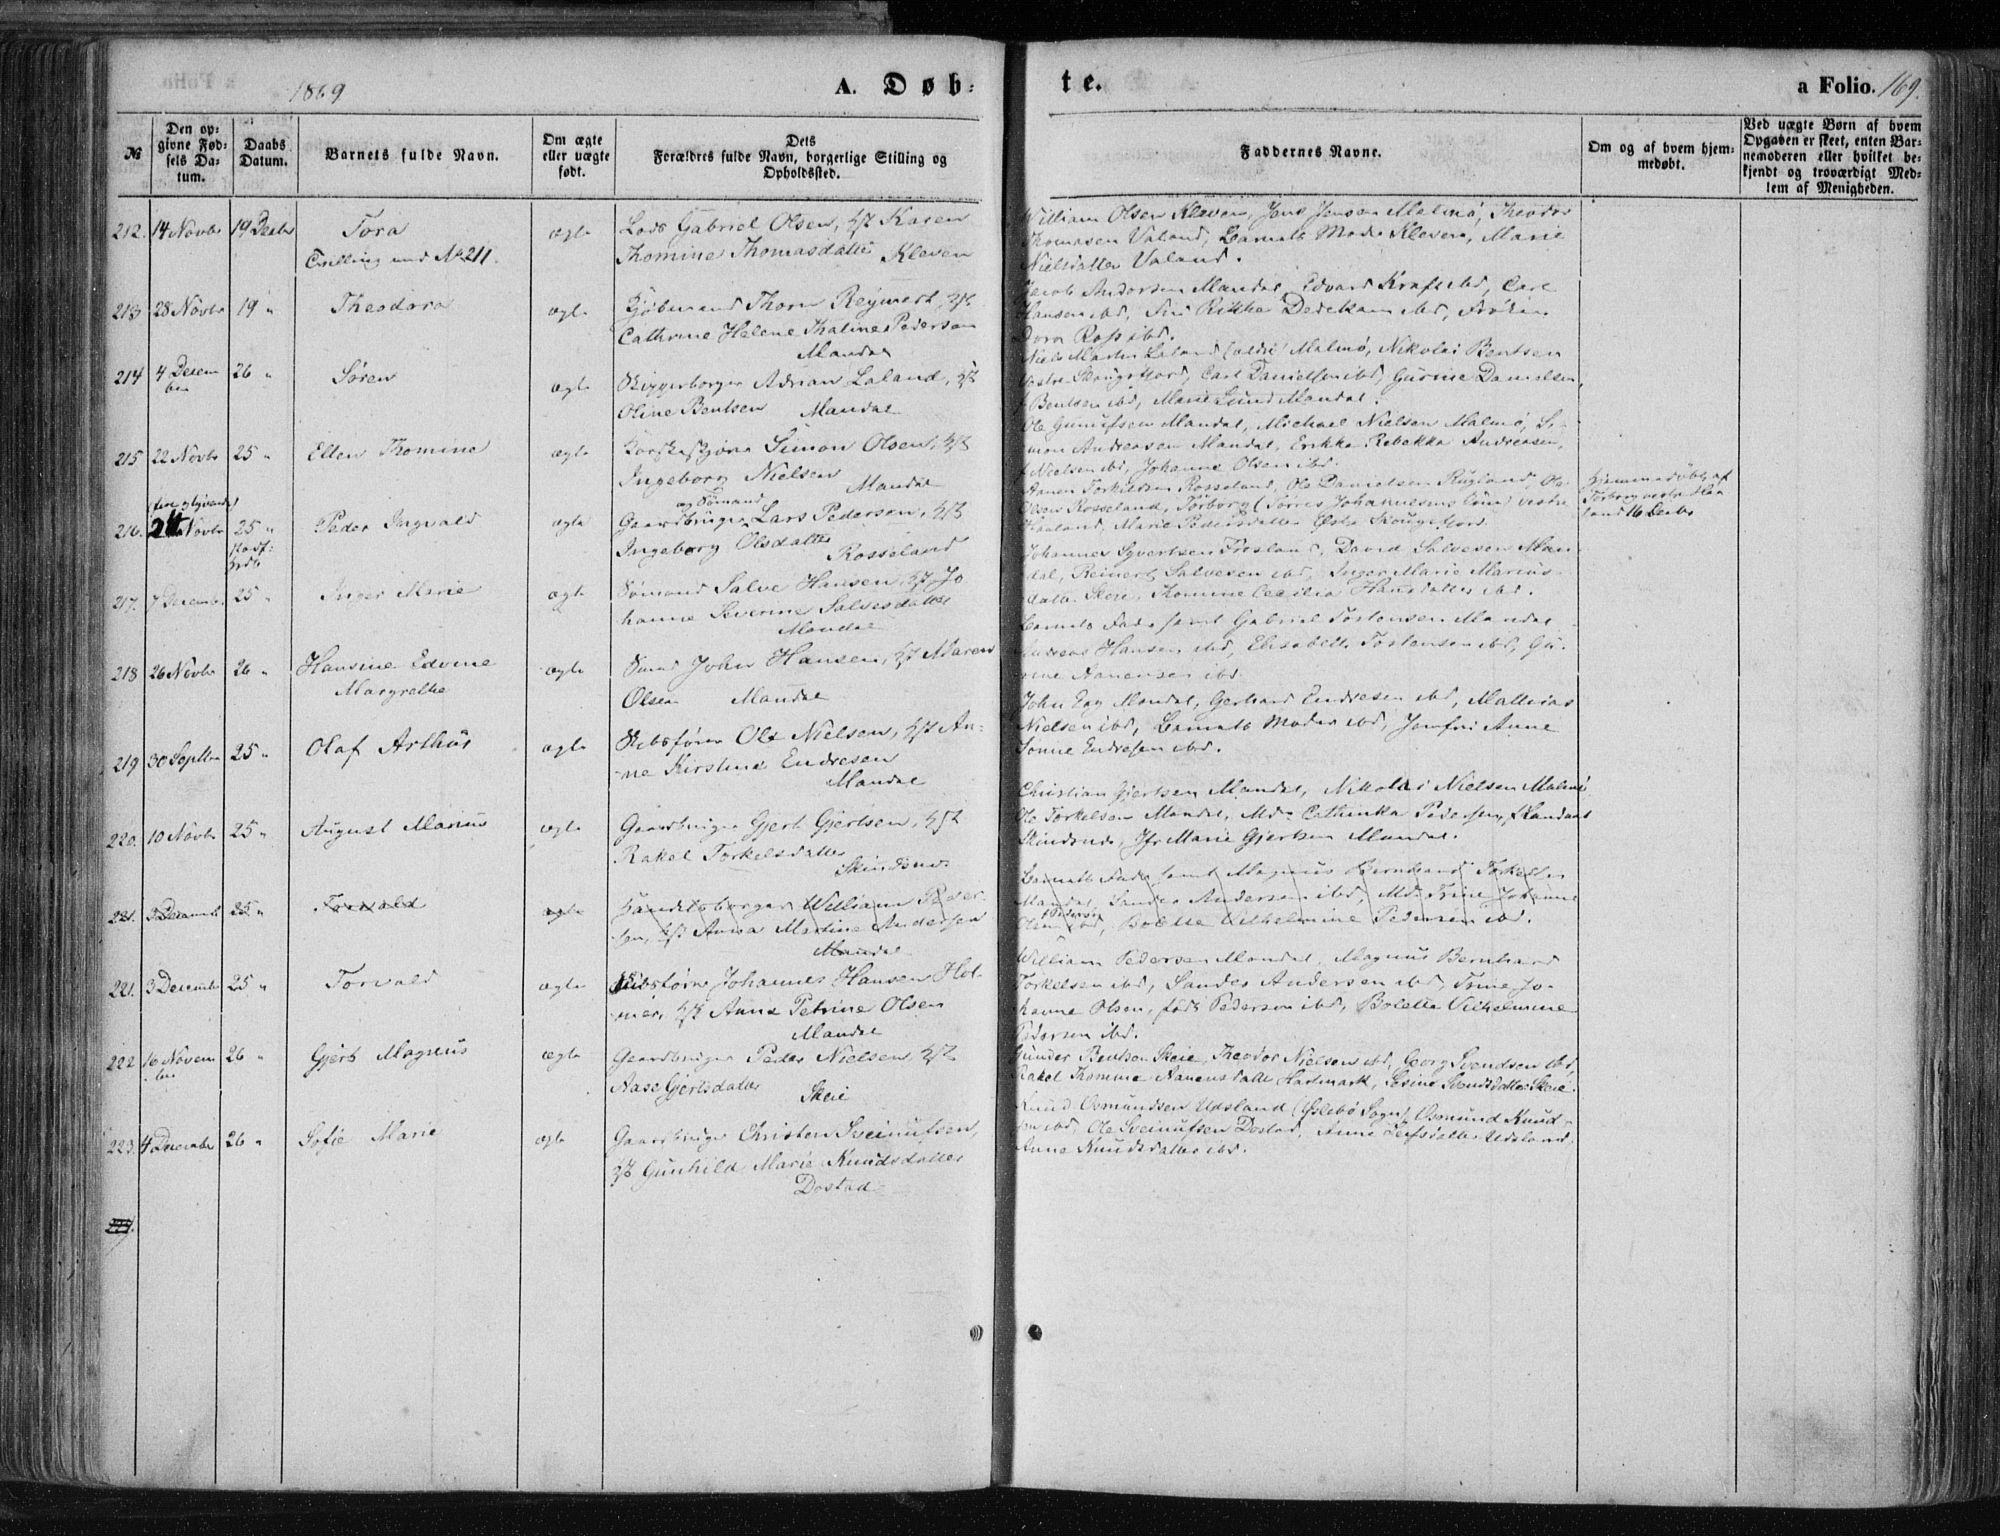 1869
A. Døb-
te.
a Folio. 169.
№
Den op-
givne Fød-
sels Da-
tum.
Daabs
Datum.
Barnets fulde Navn.
Om ægte
eller uægte
født.
Dets
Forældres fulde Navn, borgerlige Stilling og
Opholdssted.
Faddernes Navne.
Om og af hvem hjem-
medøbt.
Ved uægte Børn af hvem
Opgaven er skeet, enten Bar-
nemoderen eller hvilket be-
kjendt og troværdigt Med-
lem af Menigheden.
212. 14 Novbr 19 Decbr Tora ægte Lods Gabriel Olsen, Karen
Tvilling med No 211. Thomine Thomasdatter Kleven
William Olsen Kleven, Jens Jensen Malmø, Theodor
Thomasen Valand, Barnets Moder Kleven, Marie
Nielsdatter Valand.
213 28 Novbr 19 " Theodora ægte Kjøbmand Thorn Reymert,
Cathrine Helene Thaline Pedersen
Mandal
Jacob Andersen Mandal, Edvard Kraft ibd, Carl
Hansen ibd, Rikke Dedekam ibd, Frøken
Dora Ross ibd.
214 4 Decem- 26 " Søren ægte Skipperborger Adrian Laland,
ber Oline Bentsen Mandal
Niels Martin Laland Malmø, Nikolai Bentsen
Skougsfjord, Carl Danielsen ibd, Gurine Danielsen,
f Bentsen ibd, Marie Lund Mandal.
215 22 Novbr 25 " Ellen Thomine ægte Simon Olsen,
Ingeborg Nielsen
Mandal
Ole Gundersen Mandal, Michael Nielsen Malmø, Si-
mon Andreasen Mandal, Erikka Rebekka Andreasen,
f Nielsen ibd, Johanne Olsen ibd.
216. 24 Novbr 25 " Peder Ingvald ægte Gaardbruger og Sømand Lars Pedersen,
Ingeborg Olsdatter
Rosseland
Aanen Torkildsen Rosseland, Ole Danielsen Rugland, Ole
Olsen Rosseland, Torborg (Tørres Johannesens Vestre
Haaland, Marie Pedersdatter Skougsfjord.
Hjemmedøbt af
Torborg vestre Haa-
land 16 Decbr
217. 7 Decembr 25 " Inger Marie ægte Sømand Salve Hansen, Jo-
hanne Severine Salvesdatter
Mandal
Johannes Syvertsen Frøsland, David Salvesen Man-
dal, Reinert Salvesen ibd, Inger Marie Marius-
datter Skeie, Thomine Cecilia Hansdatter ibd.
218 26 Novbr 26 " Hansine Edvine ægte John Hansen, Maren
Margrethe Olsen Mandal
Barnets Fader samt Gabriel Tostensen Mandal
Andreas Hansen ibd, Elisabeth Tostensen ibd, Gu-
rine Aanensen ibd.
219 30 Septbr 25 " Olaf Arthur ægte Skibsfører Ole Nielsen, An-
ne Kirstine Endresen
Mandal
John Egg Mandal, Gerhard Endresen ibd, Mathias
Nielsen ibd, Barnets Moder ibd, Jomfru Anne
Tonne Endresen ibd.
220. 10 Novbr 25 " August Marius ægte Gaardbruger Gjert Gjertsen,
Rakel Torkelsdatter
Skindsnæs
Christian Gjertsen Mandal, Nikolai Nielsen Malmø
Ole Torkelsen Mandal, Md. Cathinka Pedersen,
Skindsnæs, Jfr Marie Gjertsen Mandal.
221. 3 Decembr 25 " Torvald ægte Handelsborger William Peder-
sen, Anna Martine Andersen
Mandal
Barnets Fader samt Magnus Bernhard Torkelsen
Mandal, Sander Andersen ibd, Md. Trine Johanne
Olsen f Pedersen ibd, Bolette Vilhelmine Pedersen ibd.
221. 3 Decembr 25 " Torvald ægte Skibsfører Johannes Hansen Hol-
mer, Anna Petrine Olsen
Mandal
William Pedersen Mandal, Magnus Bernhard
Torkelsen ibd, Sander Andersen ibd, Trine Jo-
hanne Olsen, født Pedersen ibd, Bolette Vilhelmine
Pedersen ibd.
222 16 Novem- 26 " Gjert Magnus ægte Gaardbruger Peder Nielsen,
ber Aase Gjertsdatter
Skeie
Gunder Bentsen Skeie, Theodor Nielsen ibd, Georg Svendsen ibd,
Rakel Thomine Aanensdatter Hartmark, Svendsdatter Skeie.
223. 4 Decembr 26 " Sofie Marie ægte Gaardbruger Christen Sveinufsen,
Gunhild Marie Knudsdatter
Dostad
Knud Osmundsen Udsland (Øslebø Sogn), Osmund Knud-
sen ibd, Ole Sveinufsen Dostad, Anne Leifsdatter Udsland,
Anne Knudsdatter ibd.